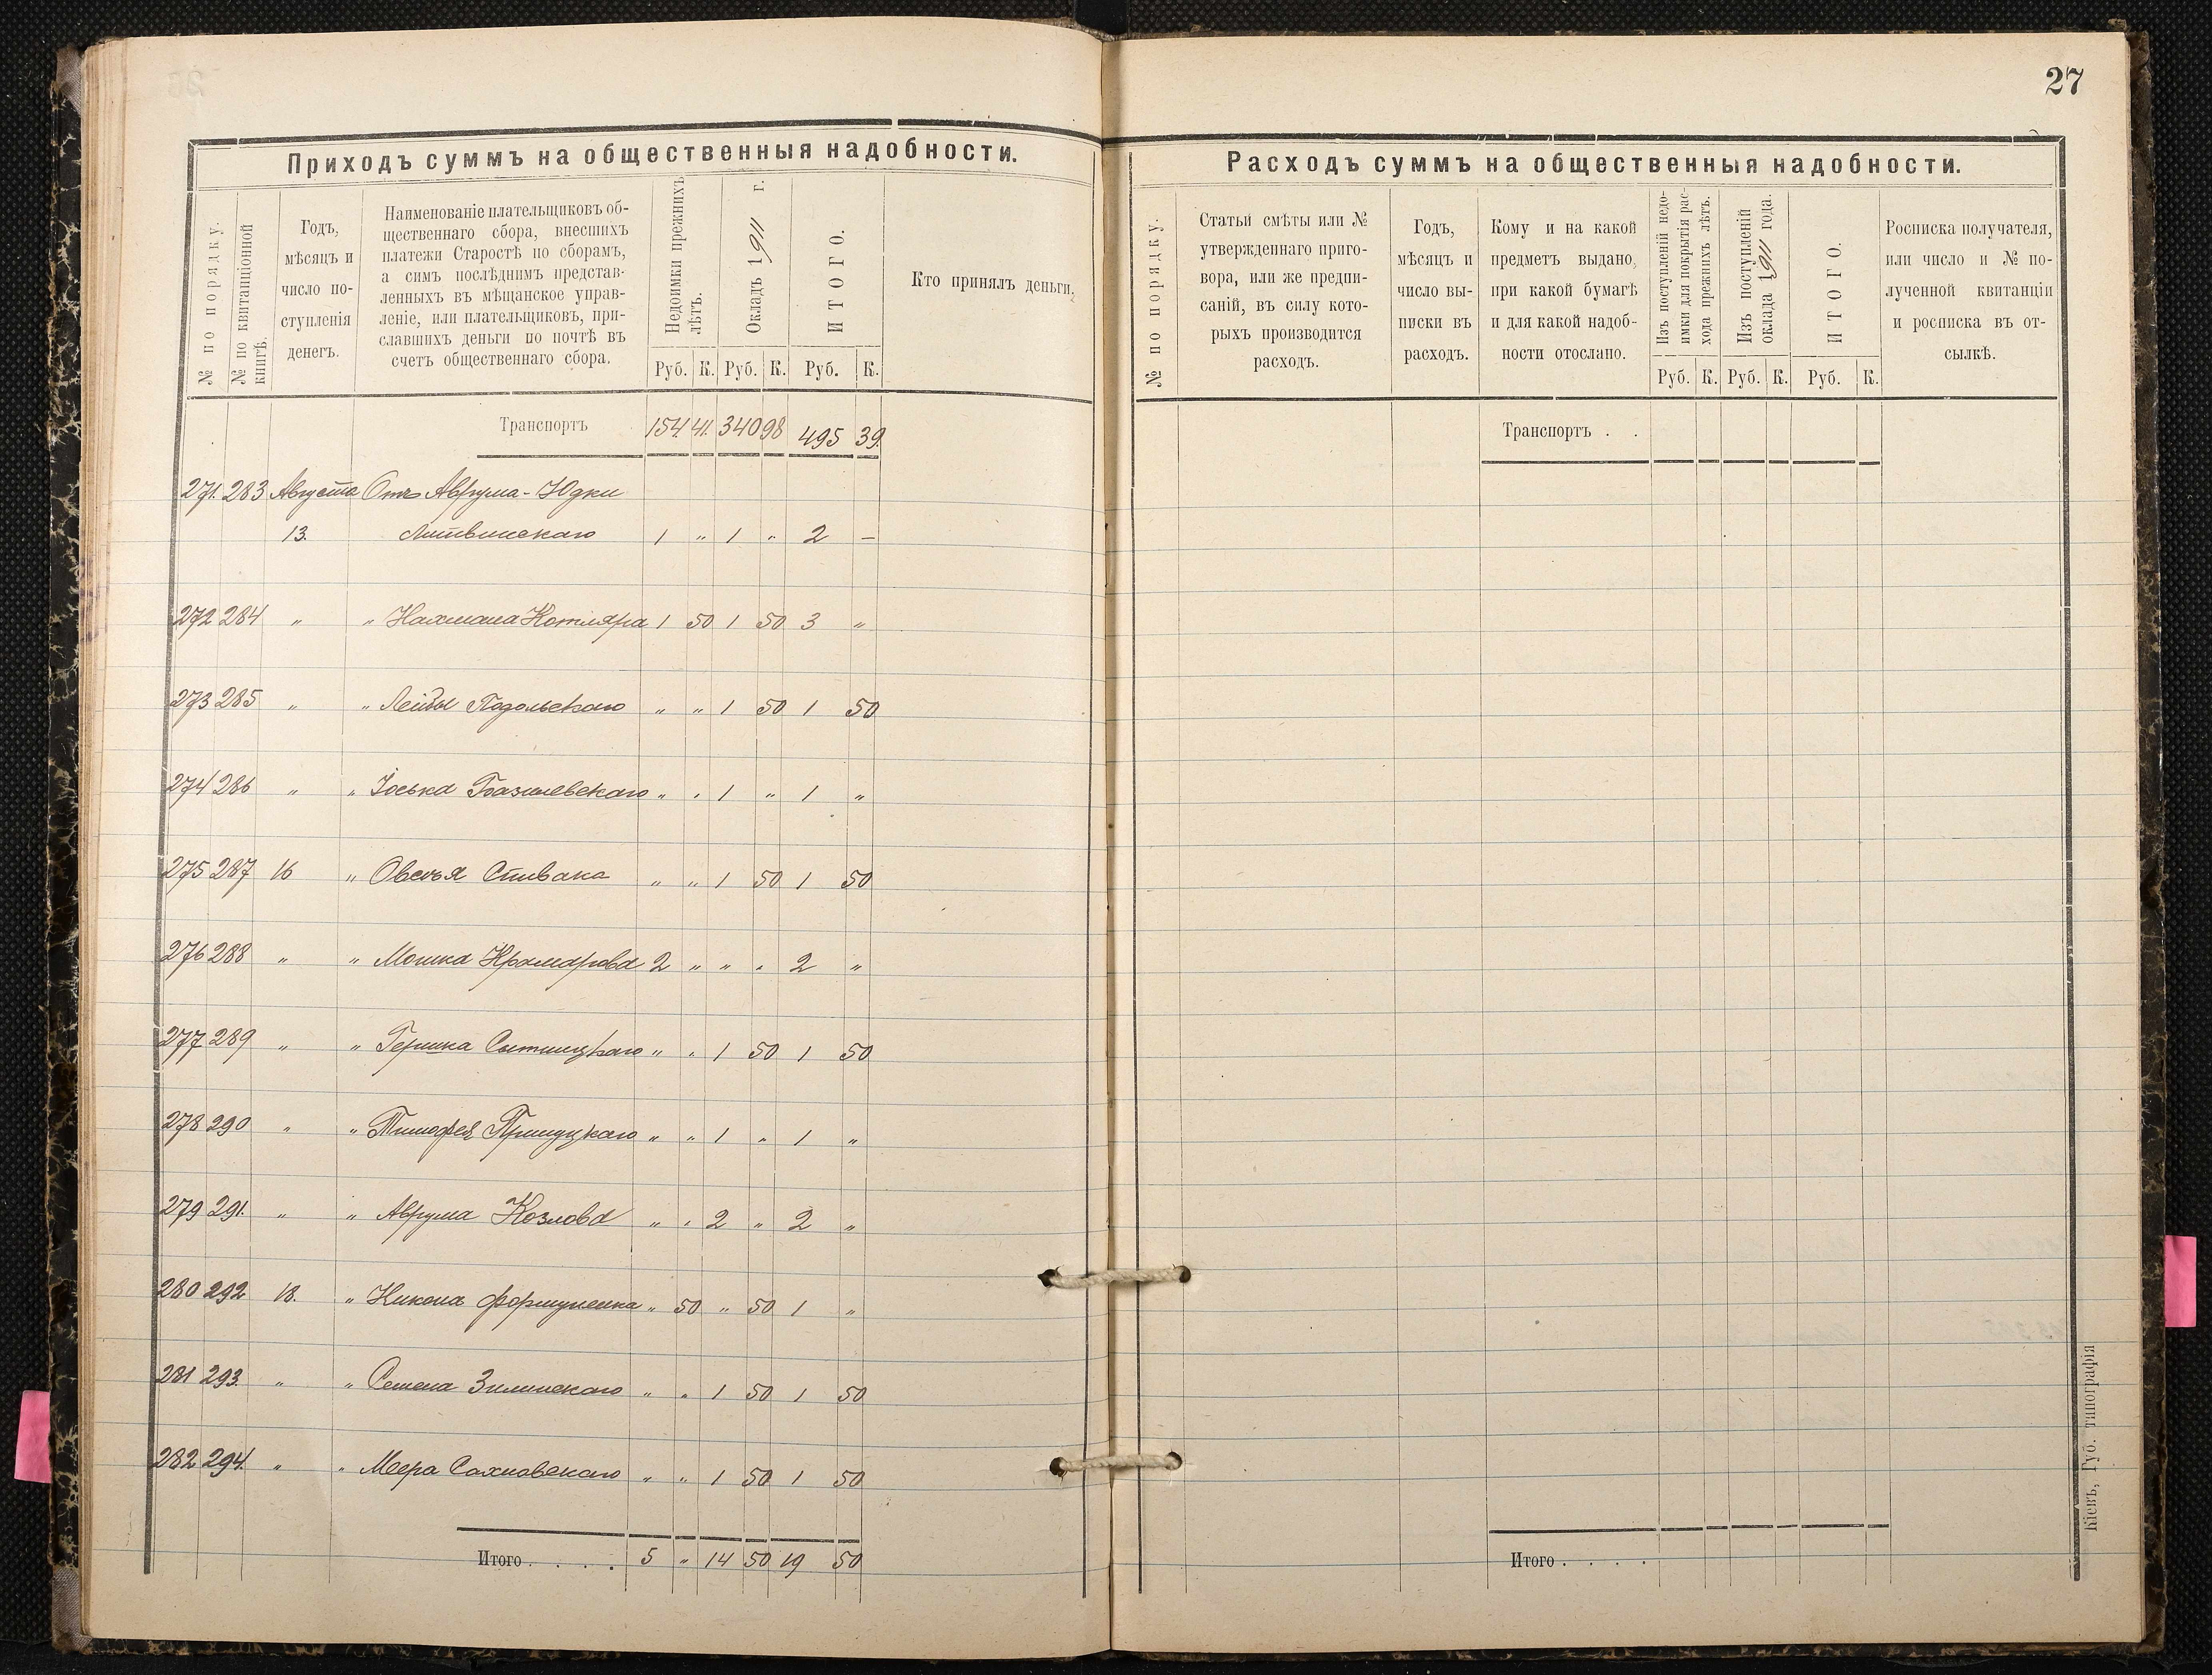 27
Приходъ суммъ на общественныя надобности.
№ по порядку.
№ по квитанціонной
книгѣ.
Годъ,
мѣсяцъ и
число по-
ступленія
денегъ.
Наименованіе плательщиковъ об-
щественнаго сбора, внесшихъ
платежи Старостѣ по сборамъ,
а симъ послѣднимъ представ-
ленныхъ въ мѣщанское управ-
леніе, или плательщиковъ, при-
славшихъ деньги по почтѣ въ
счетъ общественнаго сбора.
Недоимки прежнихъ
лѣтъ.
Окладъ 1911 г.
ИТОГО.
Кто принялъ деньги.
Руб. К. Руб. К. Руб. К.
Транспортъ 154 41. 340 98 495 39.
271. 283 Августа Отъ Аврума-Юдки
13. Литвинскаго 1 " 1 " 2 —
272 284 " " Нахмана Котляра 1 50 1 50 3 "
273 285 " " Лейбы Подольскаго " " 1 50 1 50
274 286 " " Іоська Базилевскаго " " 1 " 1 "
275 287 16 " Овсѣя Спивака " " 1 50 1 50
276 288 " " Мошка Крамарова 2 " " " 2 "
277 289 " " Гершка Сытницкаго " " 1 50 1 50
278 290 " " Тимофея " " 1 " 1 "
279 291. " " Аврума Козлова " " 2 " 2 "
280 292 18. " Никона " 50 " 50 1 "
281 293. " " Семена Зилинскаго " " 1 50 1 50
282 294. " " Меера Сахновскаго " " 1 50 1 50
Итого . . . . 5 " 14 50 19 50
Расходъ суммъ на общественныя надобности.
№ по порядку.
Статьи смѣты или №
утвержденнаго приго-
вора, или же предпи-
саній, въ силу кото-
рыхъ производится
расходъ.
Годъ,
мѣсяцъ и
число вы-
писки въ
расходъ.
Кому и на какой
предметъ выдано,
при какой бумагѣ
и для какой надоб-
ности отослано.
Изъ поступленій недо-
имки для покрытія рас-
хода прежнихъ лѣтъ.
Изъ поступленій
оклада 1911 года.
ИТОГО.
Росписка получателя,
или число и № по-
лученной квитанціи
и росписка въ от-
сылкѣ.
Руб. К. Руб. К. Руб. К.
Транспортъ . .
Итого . . . .
Кіевъ, Губ. типографія